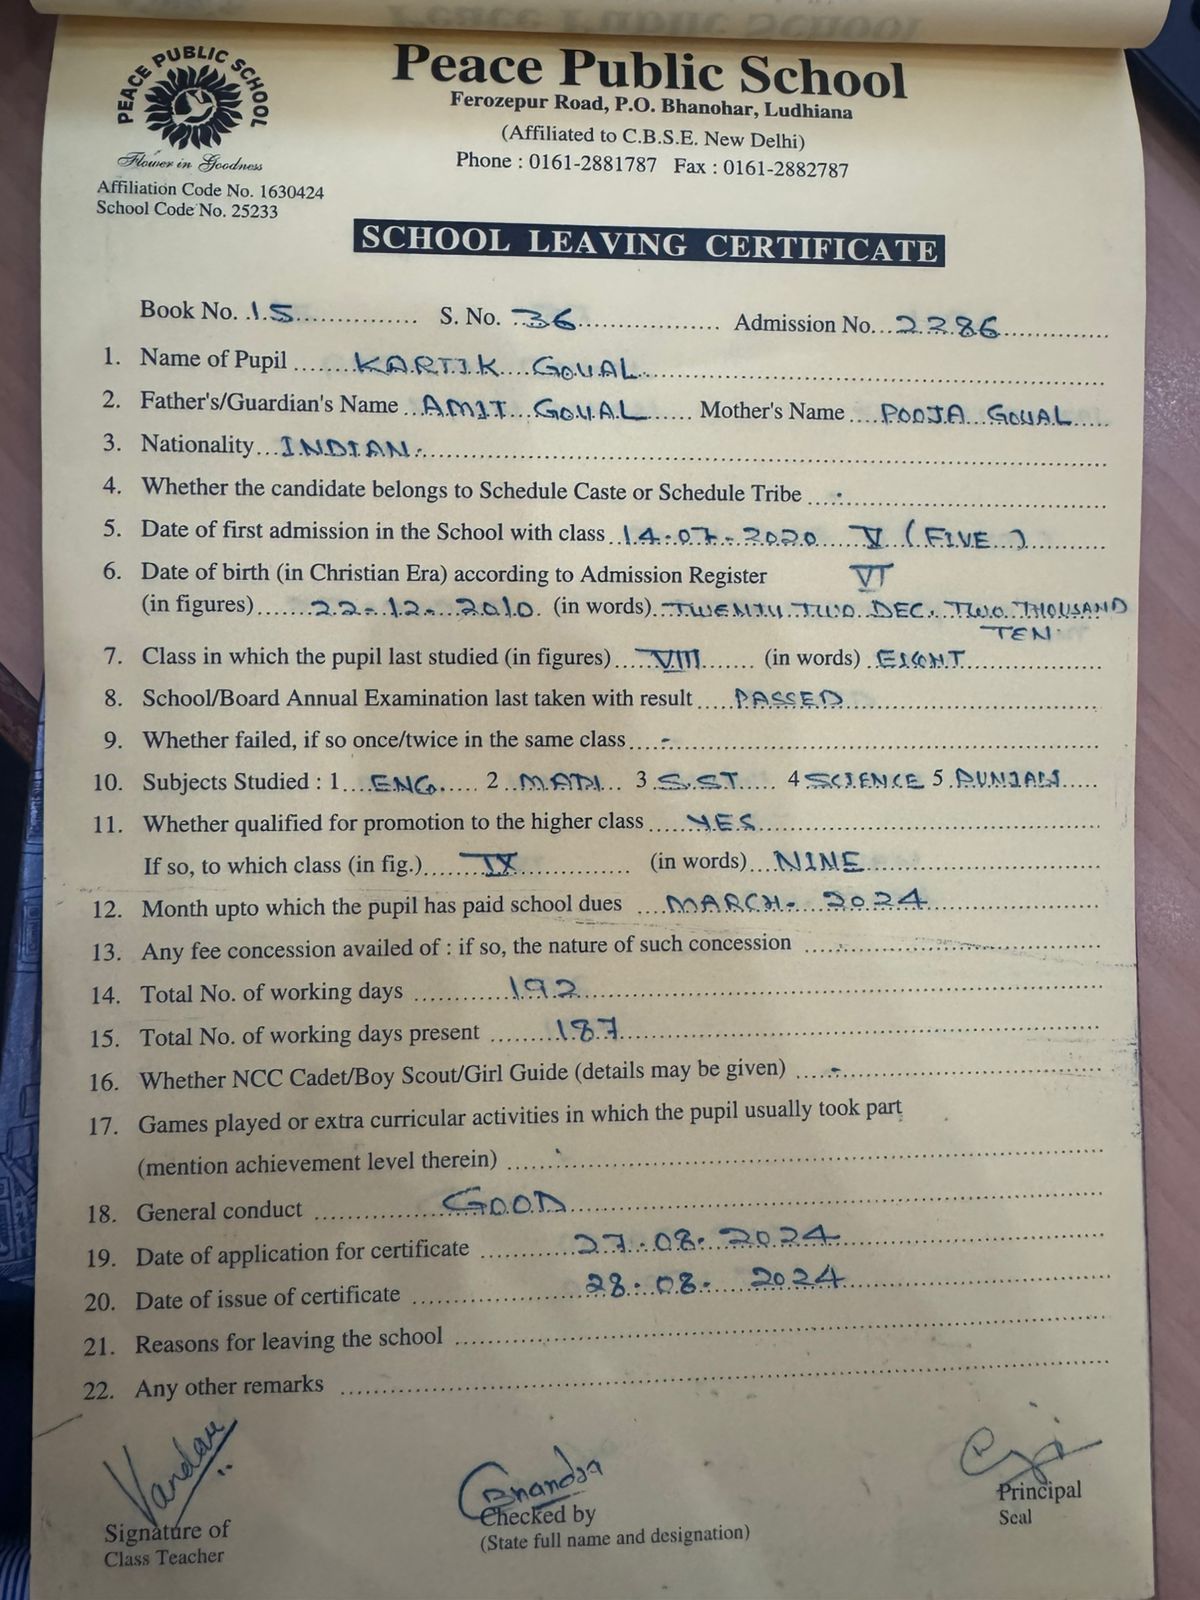 Peace Public School
PEACE PUBLIC SCHOOL
Peace Public School
Flower in Goodness
Ferozepur Road, P.O. Bhanohar, Ludhiana
(Affiliated to C.B.S.E. New Delhi)
Phone : 0161-2881787 Fax : 0161-2882787
Affiliation Code No. 1630424
School Code No. 25233
SCHOOL LEAVING CERTIFICATE
Book No. 15 S. No. 36 Admission No. 2286
1. Name of Pupil KARTIK GOYAL
2. Father's/Guardian's Name AMIT GOYAL Mother's Name POOJA GOYAL
3. Nationality INDIAN.
4. Whether the candidate belongs to Schedule Caste or Schedule Tribe -
5. Date of first admission in the School with class 14-07-2020 V (FIVE)
6. Date of birth (in Christian Era) according to Admission Register VI
(in figures) 22-12-2010. (in words) TWENTY TWO DEC. TWO THOUSAND
TEN.
7. Class in which the pupil last studied (in figures) VIII (in words) EIGHT
8. School/Board Annual Examination last taken with result PASSED
9. Whether failed, if so once/twice in the same class -
10. Subjects Studied : 1 ENG. 2 3 S.ST 4 SCIENCE 5 PUNJABI
11. Whether qualified for promotion to the higher class YES
If so, to which class (in fig.) IX (in words) NINE
12. Month upto which the pupil has paid school dues MARCH - 2024
13. Any fee concession availed of : if so, the nature of such concession
14. Total No. of working days 192
15. Total No. of working days present 187
16. Whether NCC Cadet/Boy Scout/Girl Guide (details may be given) -
17. Games played or extra curricular activities in which the pupil usually took part
(mention achievement level therein)
18. General conduct GOOD
19. Date of application for certificate 27-08-2024
20. Date of issue of certificate 28-08-2024
21. Reasons for leaving the school
22. Any other remarks
Signature of
Class Teacher
Checked by
(State full name and designation)
Principal
Seal